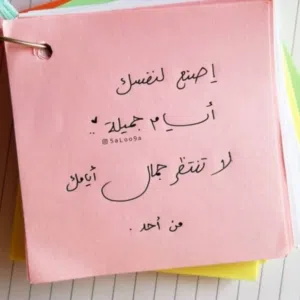 إصنع لنفسك
أيام جميلة
5aLoo9a
لا تنتظر جمال أيامك
من أحد .